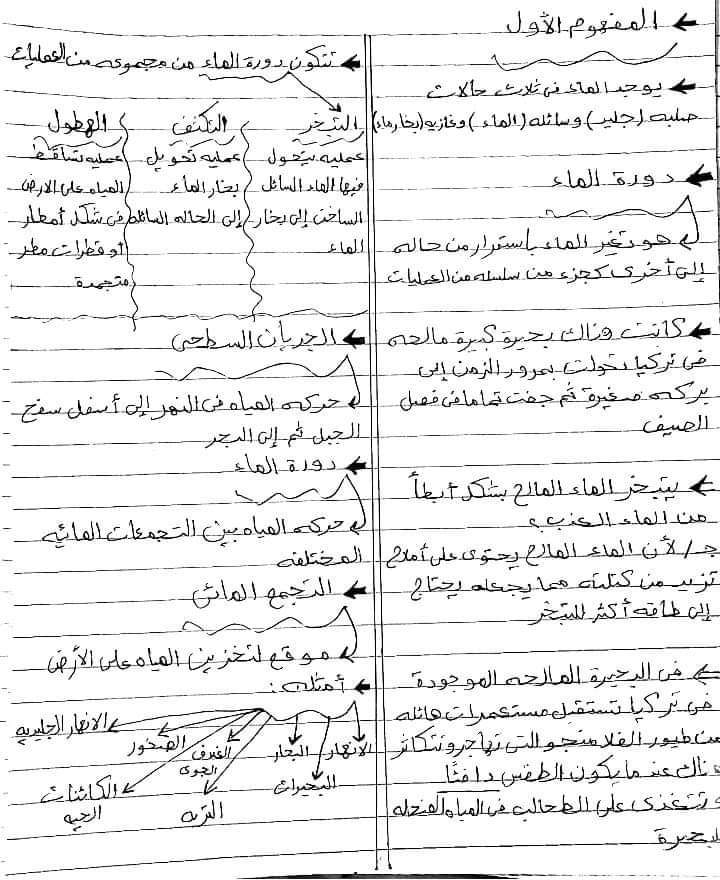 المفهوم الأول
يوجد الماء فى ثلاث حالات
صلبه (جليد) وسائله (الماء) وغازيه (بخار ماء)
دورة الماء
هو تغير الماء باستمرار من حاله
إلى أخرى كجزء من سلسله من العمليات
كانت هناك بحيرة كبيرة مالحه
فى تركيا تحولت بمرور الزمن إلى
بركه صغيرة ثم جفت تماما فى فصل
الصيف
يتبخر الماء المالح بشكل أبطأ
من الماء العذب؟
جـ/ لأن الماء المالح يحتوى على أملاح
تزيد من كتلته مما يجعله يحتاج
إلى طاقه أكثر للتبخر
فى البحيرة المالحه الموجودة
فى تركيا تستقبل مستعمرات هائله
من طيور الفلامنجو التى تهاجر وتتكاثر
هناك عندما يكون الطقس دافئًا
وتتغذى على الطحالب فى المياه الضحله
للبحيرة
تتكون دورة الماء من مجموعه من العمليات
التبخر
عمليه يتحول
فيها الماء السائل
الساخن إلى بخار
الماء
التكثف
عمليه تحويل
بخار الماء
إلى الحاله السائله
الهطول
عمليه تساقط
المياه على الارض
فى شكل أمطار
أو قطرات مطر
متجمدة
الجريان السطحى
حركه المياه فى النهر إلى أسفل سفح
الجبل ثم إلى البحر
دورة الماء
حركه المياه بين التجمعات المائيه
المختلفه
التجمع المائى
موقع لتخزين المياه على الأرض
أمثله:
الانهار
البحيرات
البحار
الغلاف
الجوى
التربه
الصخور
الكائنات
الحيه
الانهار الجليديه